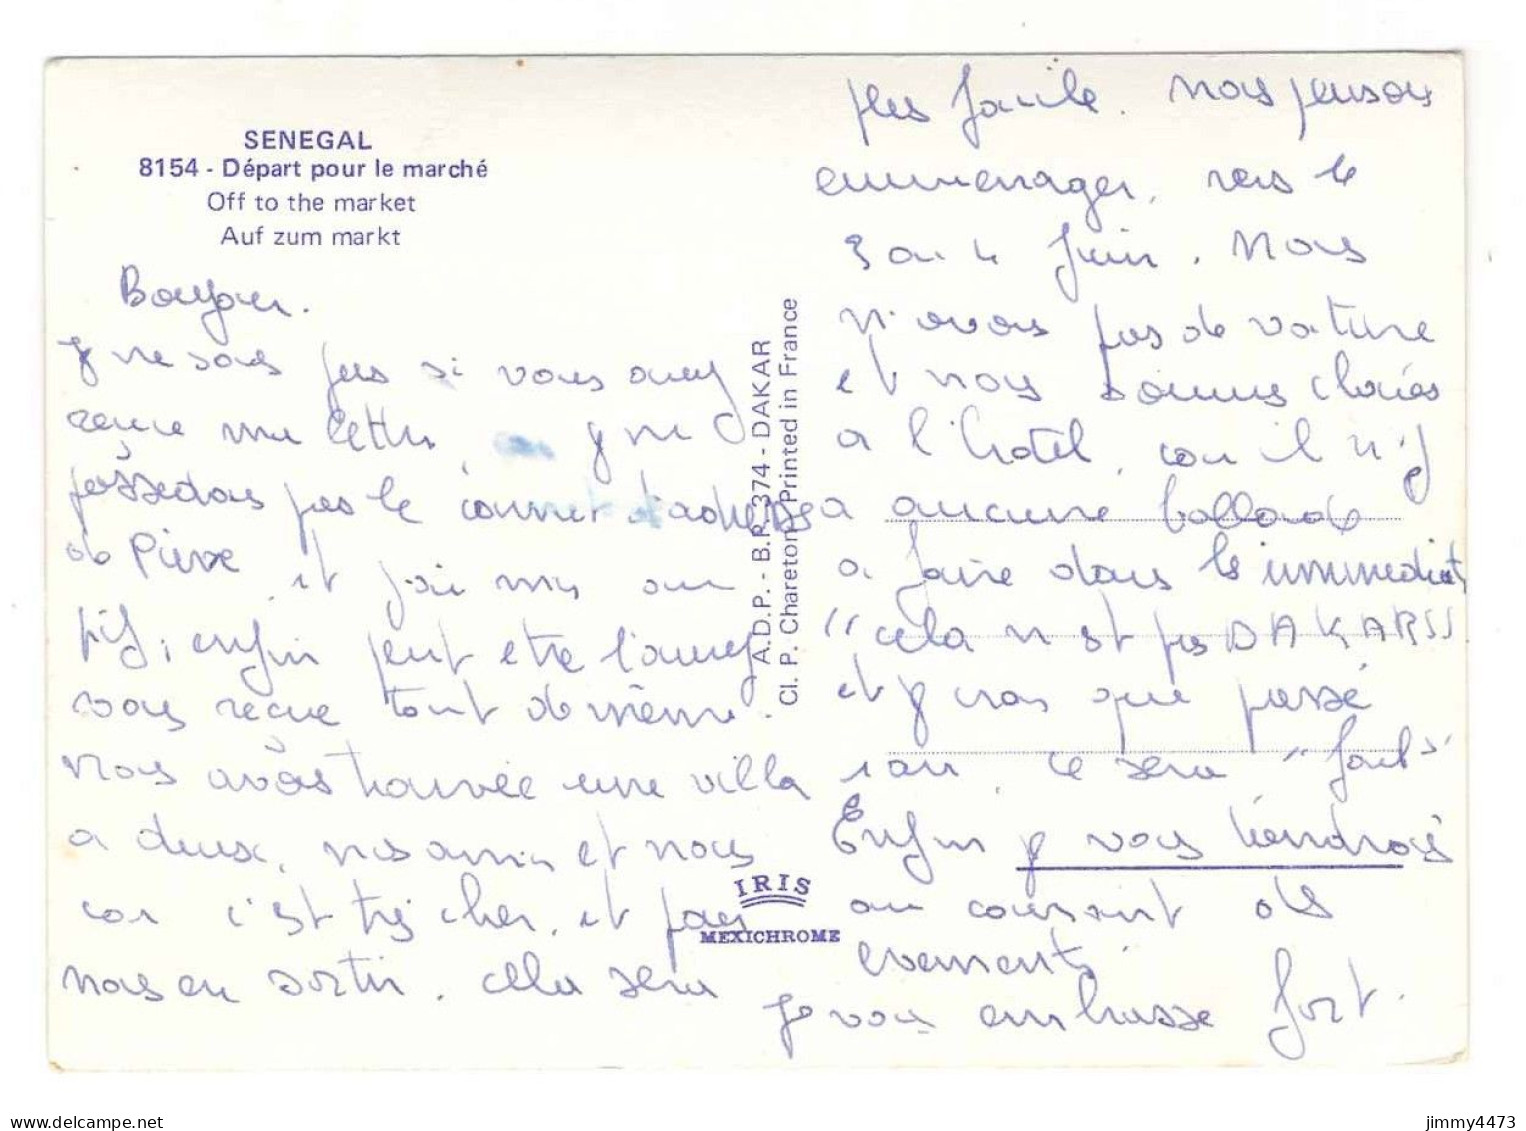 SENEGAL
8154 - Départ pour le marché
Off to the market
Auf zum markt
Bonjour.
Je ne sais pas si vous avez
recue ma lettre, je ne
possedais pas le carnet d'adresse
de Pierre, et j'ai mis au
pif, enfin peut etre l'avez
vous recue tout de même.
Nous avons trouvée une villa
a deux, nos amis et nous
car c'est très cher, et pour
nous en sortir, cela sera
plus facile. Nous pensons
emmenager, vers le
3 ou 4 Juin. Nous
n'avons pas de voiture
et nous sommes cloués
a l'hotel, car il n'y
a aucune ballade
a faire dans les immediats
"cela n'est pas DAKAR"
et je crois que passé
1 an, ce sera "fait"
Enfin je vous tiendrais
au courant des
evements
Je vous embrasse fort.
A.D.P. - B.P. 374 - DAKAR
Cl. P. Chareton Printed in France
IRIS
MEXICHROME
delcampe.net
jimmy4473